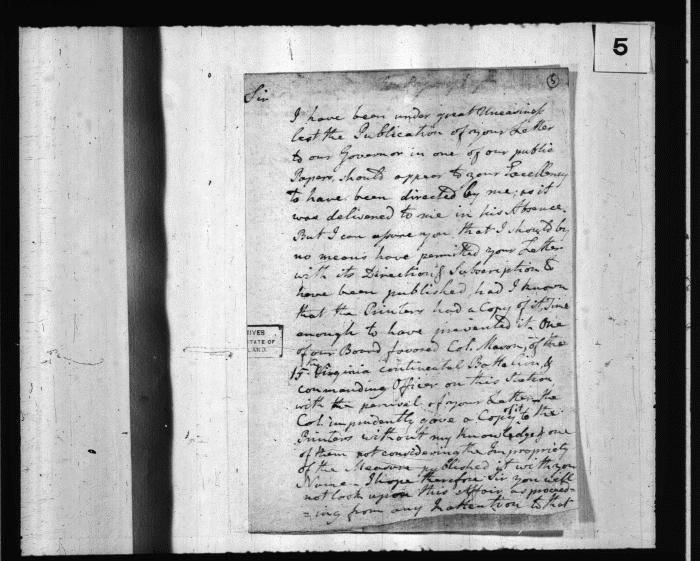 5
5
Sir
I have been under great Uneasiness
lest the Publication of your Letter
to our Governor in one of our public
Papers, should appear to your Excellency
to have been directed by me; as it
was delivered to me in his Absence.
But I can assure you that I should by
no means have permitted your Letter
with its Direction & Subscription to
have been published, had I known
that the Printers had a Copy of it, Time
enough to have prevented it. One
of our Board favored Col. Mason, of the
15th Virginia continental Battalion, &
commanding Officer on this Station
with the perusal of your Letter. The
Col. imprudently gave a Copy of it to the
Printers without my Knowledge, & one
of them not considering the Impropriety
of the Measure published it with your
Name. I hope therefore Sir you will
not look upon this Affair, as proceed-
=ing from any Inattention to that
IVES
STATE OF
LAND.